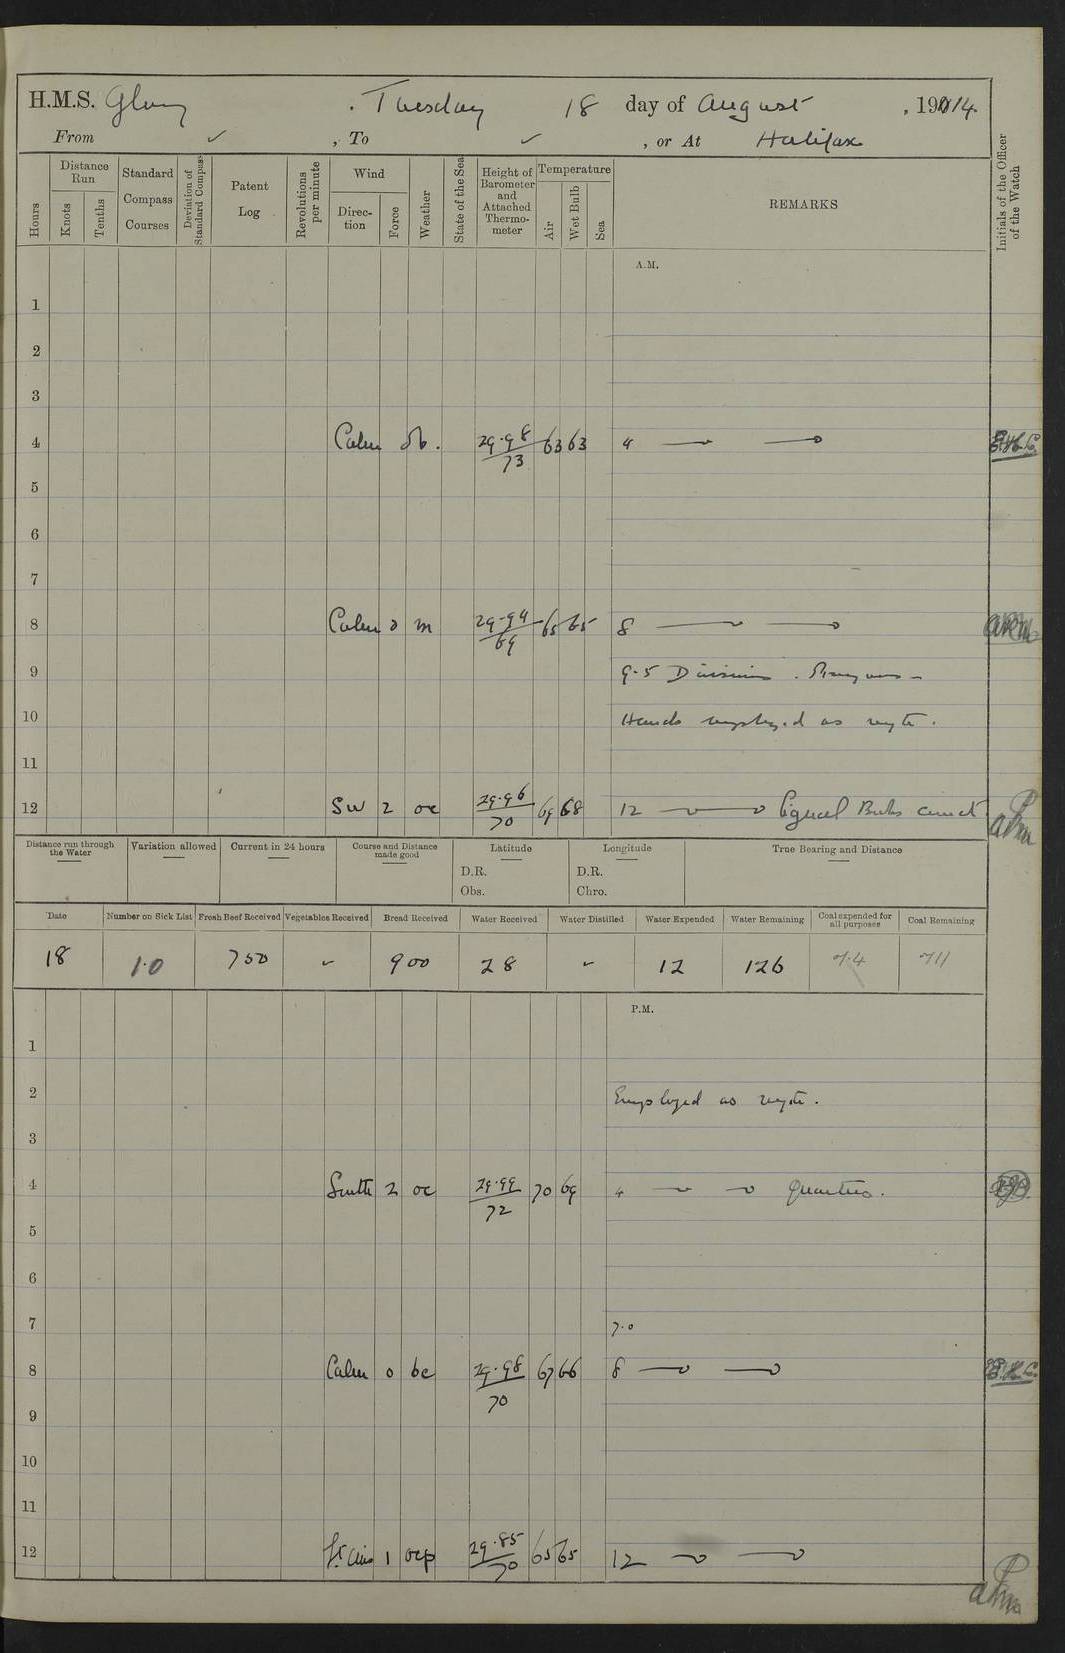 H.M.S. Glory . Tuesday 18 day of August , 1914.
From ✓ , To ✓ , or At Halifax
Hours
Distance Run
Knots
Tenths
Standard Compass Courses
Deviation of Standard Compass
Patent Log
Revolutions per minute
Wind
Direction
Force
Weather
State of the Sea
Height of Barometer and Attached Thermometer
Temperature
Air
Wet Bulb
Sea
REMARKS
Initials of the Officer of the Watch
A.M.
1
2
3
4 Calm 29.98/73 63 63 4
5
6
7
8 Calm 0 m 29.94/69 65 65 8
9 9.5 Divisions . Prayers
10 Hands employed as reqte.
11
12 SW 2 oc 29.96/70 69 68 12 Signal Books correct
Distance run through the Water
Variation allowed
Current in 24 hours
Course and Distance made good
Latitude
D.R.
Obs.
Longitude
D.R.
Chro.
True Bearing and Distance
Date Number on Sick List Fresh Beef Received Vegetables Received Bread Received Water Received Water Distilled Water Expended Water Remaining Coal expended for all purposes Coal Remaining
18 10 750 ✓ 900 28 ✓ 12 126 7.4 711
P.M.
1
2 Employed as reqte.
3
4 South 2 oc 29.99/72 70 69 4 Quarters.
5
6
7 7.0
8 Calm 0 bc 29.98/70 67 66 8 E.H.C.
9
10
11
12 Lt Airs 1 ocp 29.85/70 65 65 12